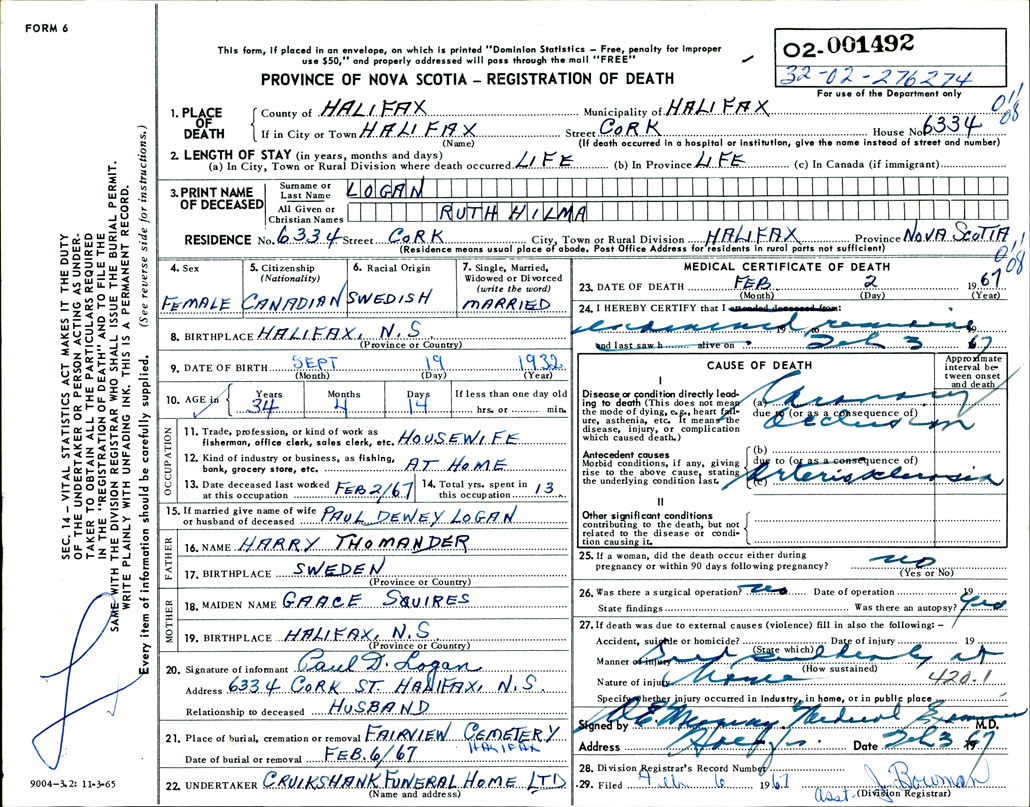 FORM 6
This form, if placed in an envelope, on which is printed "Dominion Statistics – Free, penalty for improper
use $50," and properly addressed will pass through the mail "FREE"
PROVINCE OF NOVA SCOTIA – REGISTRATION OF DEATH
02-001492
32-02-276274
For use of the Department only
011
08
SEC. 14 – VITAL STATISTICS ACT MAKES IT THE DUTY
OF THE UNDERTAKER OR PERSON ACTING AS UNDER-
TAKER TO OBTAIN ALL THE PARTICULARS REQUIRED
IN THE "REGISTRATION OF DEATH" AND TO FILE THE
SAME WITH THE DIVISION REGISTRAR WHO SHALL ISSUE THE BURIAL PERMIT.
WRITE PLAINLY WITH UNFADING INK. THIS IS A PERMANENT RECORD.
Every item of information should be carefully supplied. (See reverse side for instructions.)
1. PLACE OF DEATH
County of HALIFAX Municipality of HALIFAX
If in City or Town HALIFAX Street CORK House No 6334
(Name) (If death occurred in a hospital or institution, give the name instead of street and number)
2. LENGTH OF STAY (in years, months and days)
(a) In City, Town or Rural Division where death occurred LIFE (b) In Province LIFE (c) In Canada (if immigrant)
3. PRINT NAME OF DECEASED
Surname or Last Name LOGAN
All Given or Christian Names RUTH HILMA
RESIDENCE No. 6334 Street CORK City, Town or Rural Division HALIFAX Province NOVA SCOTIA
(Residence means usual place of abode. Post Office Address for residents in rural parts not sufficient)
011
08
4. Sex FEMALE
5. Citizenship (Nationality) CANADIAN
6. Racial Origin SWEDISH
7. Single, Married, Widowed or Divorced (write the word) MARRIED
8. BIRTHPLACE HALIFAX, N.S.
(Province or Country)
9. DATE OF BIRTH SEPT 19 1932
(Month) (Day) (Year)
10. AGE in Years 34 Months 4 Days 14 If less than one day old
hrs. or min.
OCCUPATION
11. Trade, profession, or kind of work as fisherman, office clerk, sales clerk, etc. HOUSEWIFE
12. Kind of industry or business, as fishing, bank, grocery store, etc. AT HOME
13. Date deceased last worked at this occupation FEB 2/67 14. Total yrs. spent in this occupation 13
15. If married give name of wife or husband of deceased PAUL DEWEY LOGAN
FATHER
16. NAME HARRY THOMANDER
17. BIRTHPLACE SWEDEN
(Province or Country)
MOTHER
18. MAIDEN NAME GRACE SQUIRES
19. BIRTHPLACE HALIFAX, N.S.
(Province or Country)
20. Signature of informant Paul D. Logan
Address 6334 CORK ST. HALIFAX, N.S.
Relationship to deceased HUSBAND
21. Place of burial, cremation or removal FAIRVIEW CEMETERY
HALIFAX
Date of burial or removal FEB. 6/67
22. UNDERTAKER CRUIKSHANK FUNERAL HOME LTD
(Name and address)
9004–3.2: 11-3-65
MEDICAL CERTIFICATE OF DEATH
23. DATE OF DEATH FEB 2 1967
(Month) (Day) (Year)
24. I HEREBY CERTIFY that I attended deceased from:
examined remains
19 to
and last saw h alive on Feb 3 67
CAUSE OF DEATH
Approximate interval between onset and death
I
Disease or condition directly leading to death (This does not mean the mode of dying, e.g., heart failure, asthenia, etc. It means the disease, injury, or complication which caused death.)
(a) Coronary
due to (or as a consequence of)
Occlusion
Antecedent causes
Morbid conditions, if any, giving rise to the above cause, stating the underlying condition last.
(b)
due to (or as a consequence of)
(c) Arteriosklerosis
II
Other significant conditions
contributing to the death, but not related to the disease or condition causing it.
25. If a woman, did the death occur either during pregnancy or within 90 days following pregnancy? no
(Yes or No)
26. Was there a surgical operation? no Date of operation 19
State findings Was there an autopsy? Yes
27. If death was due to external causes (violence) fill in also the following: –
Accident, suicide or homicide? Date of injury 19
(State which)
Manner of injury Died suddenly at
(How sustained)
Nature of injury Home 420.1
Specify whether injury occurred in industry, in home, or in public place
Signed by Medical Examiner M.D.
Address Hfx Date Feb 3 1967
28. Division Registrar's Record Number
29. Filed Feb 6 1967 J. Bowman
asst. (Division Registrar)